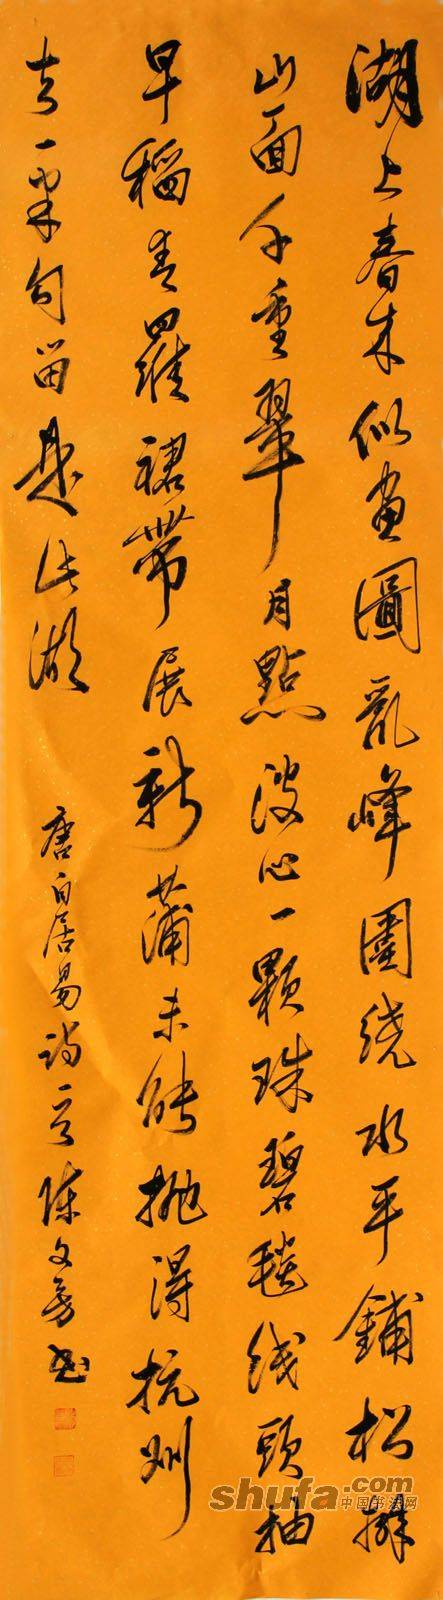 湖上春来似畫圖亂峰圍绕水平鋪松排
山面千重翠月點波心一顆珠碧毯线頭抽
早稻青羅裙帶展新蒲未能抛得杭州
去一半句留是此湖
唐白居易诗一首 陈文 书
shufa.com
中国书法网